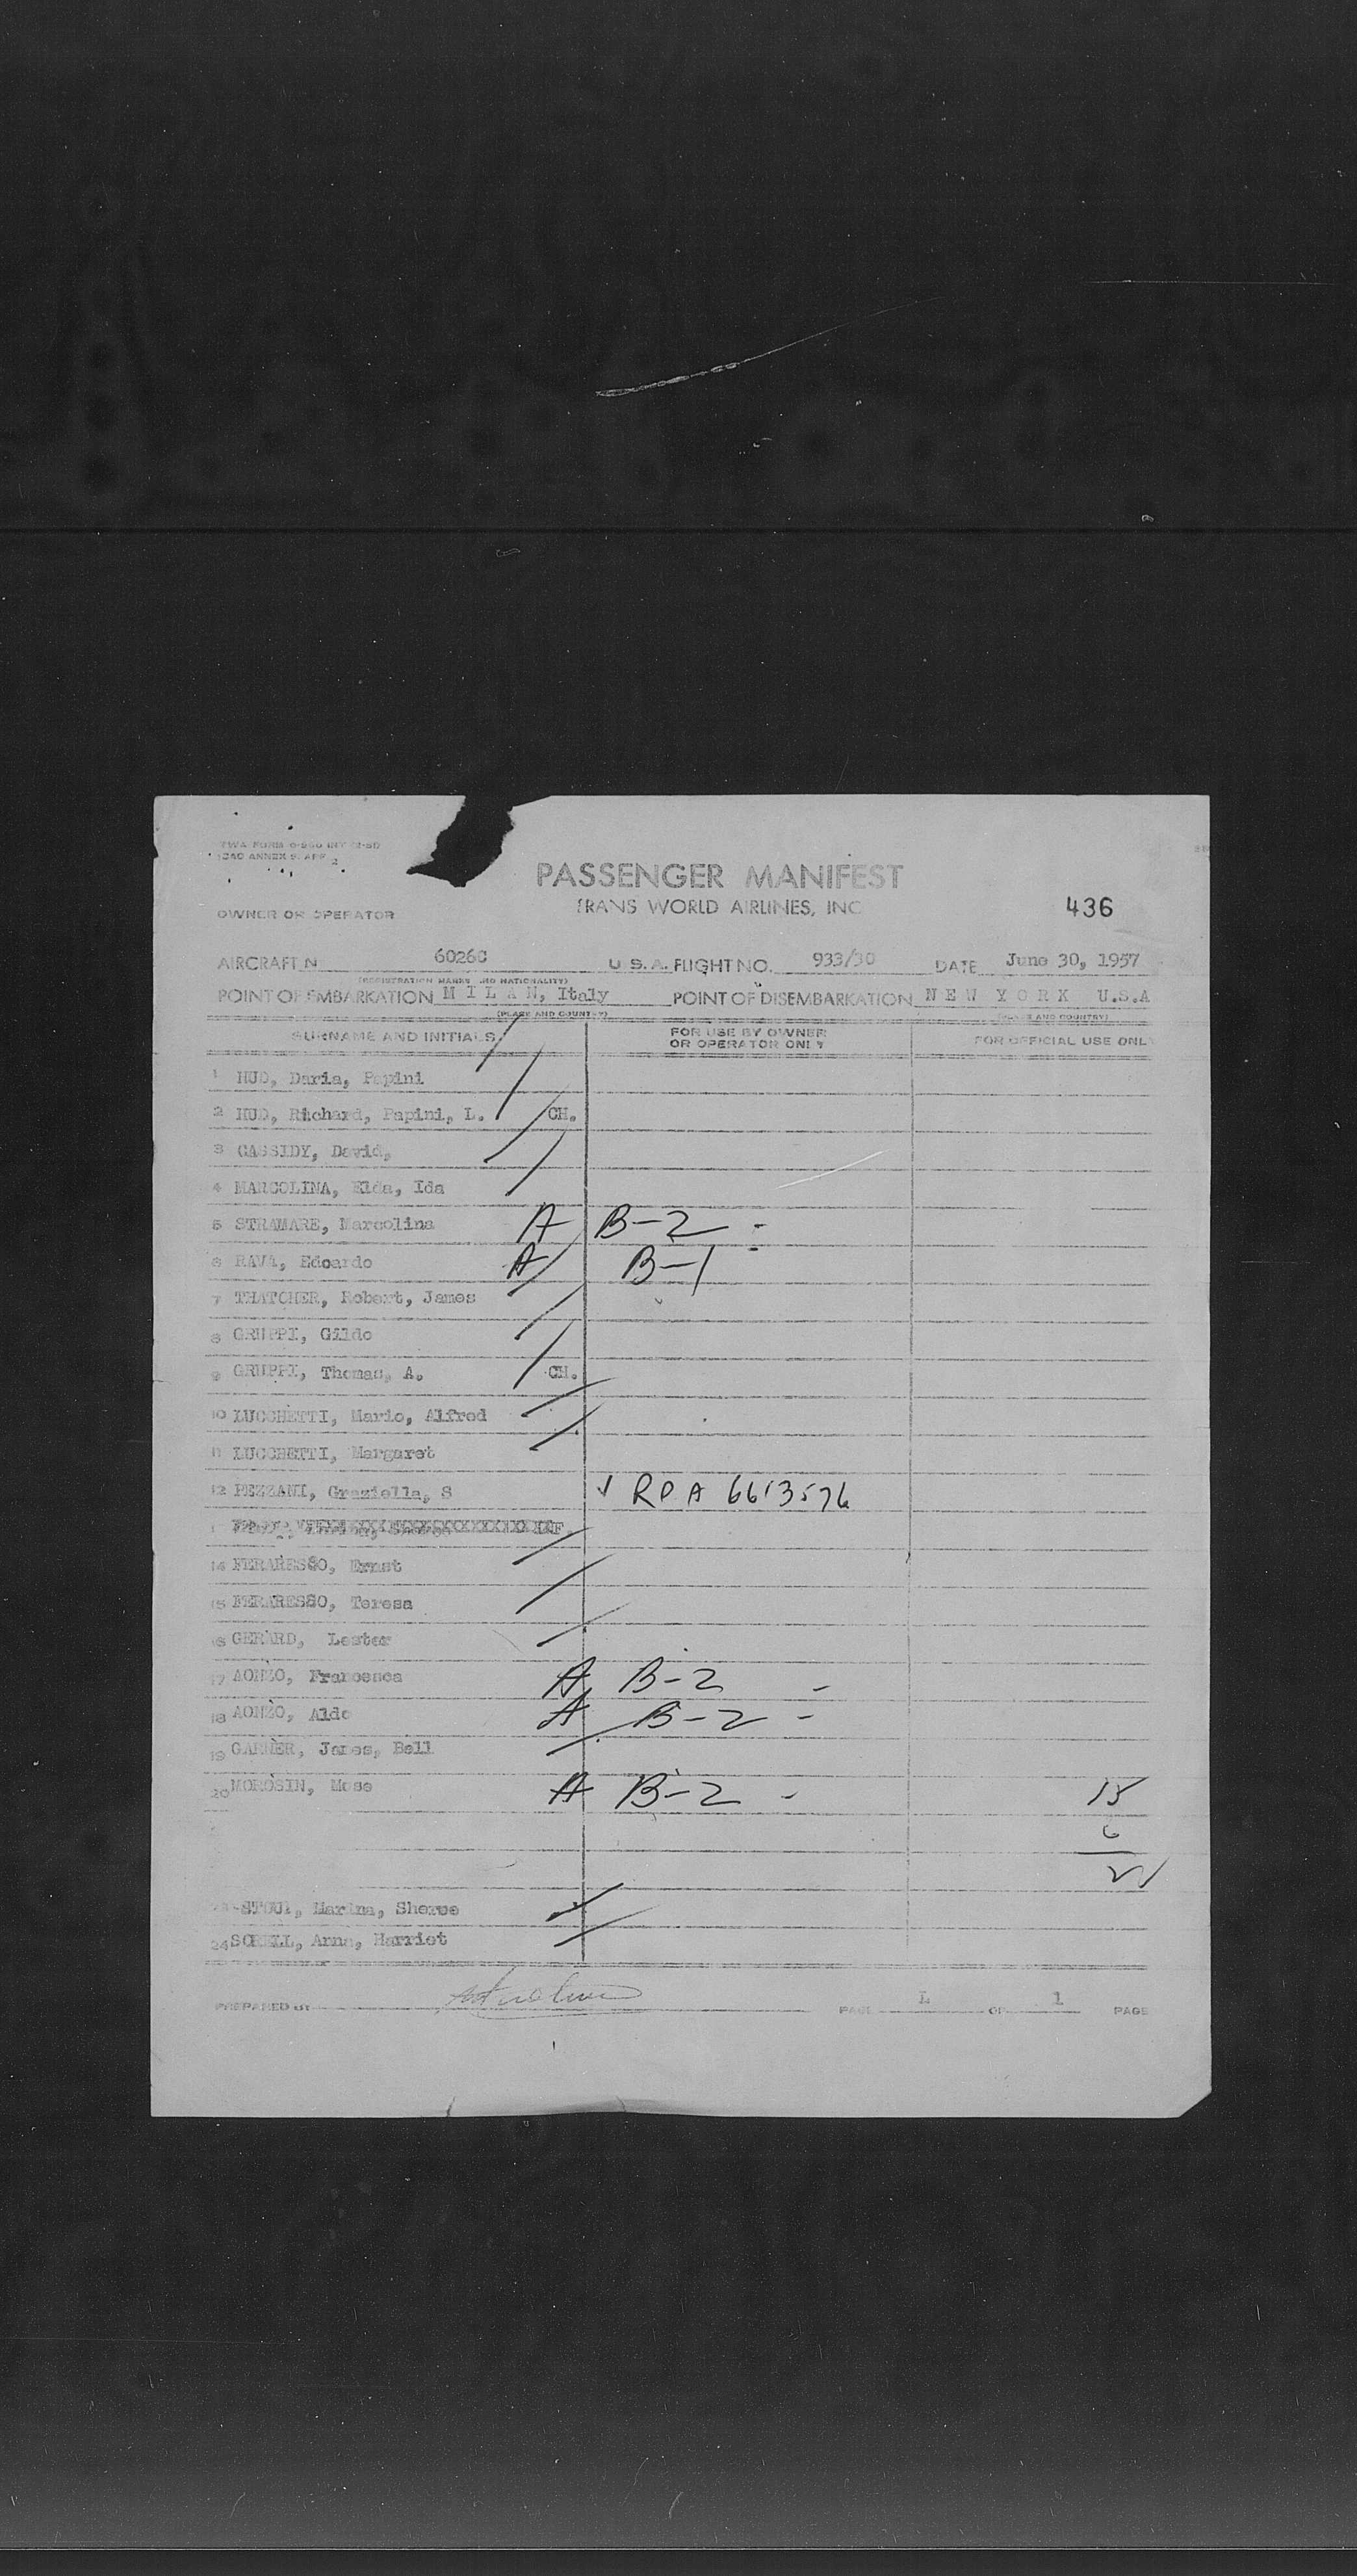 TWA FORM
ICAO ANNEX 9. APP 2
PASSENGER MANIFEST
TRANS WORLD AIRLINES, INC
436
OWNER OR OPERATOR
AIRCRAFT N 6026C U. S. A. FLIGHT NO. 933/30 DATE June 30, 1957
(REGISTRATION MARKS AND NATIONALITY)
POINT OF EMBARKATION M I L A N, Italy POINT OF DISEMBARKATION N E W Y O R K U.S.A
(PLACE AND COUNTRY) (PLACE AND COUNTRY)
SURNAME AND INITIALS FOR USE BY OWNER OR OPERATOR ONLY FOR OFFICIAL USE ONLY
1 HUD, Daria, Papini
2 HUD, Richard, Papini, L. CH.
3 CASSIDY, David,
4 MARCOLINA, Elda, Ida
5 STRAMARE, Marcolina A B-2 -
6 RAVA, Edoardo A B-1 -
7 THATCHER, Robert, James
8 GRUPPI, Gildo
9 GRUPPI, Thomas, A. CH.
10 LUCCHETTI, Mario, Alfred
11 LUCCHETTI, Margaret
12 PEZZANI, Graziella, S √ RP A 6613576
14 FERARESSO, Ernst
15 FERARESSO, Teresa
16 GERARD, Lester
17 AONZO, Francesca A B-2 -
18 AONZO, Aldo A B-2 -
19 GARNER, James, Bell
20 MOROSIN, Mose A B-2 - 15
6
21
Marina, Sheroe
24 Harriet
PREPARED BY PAGE 1 OF 1 PAGE